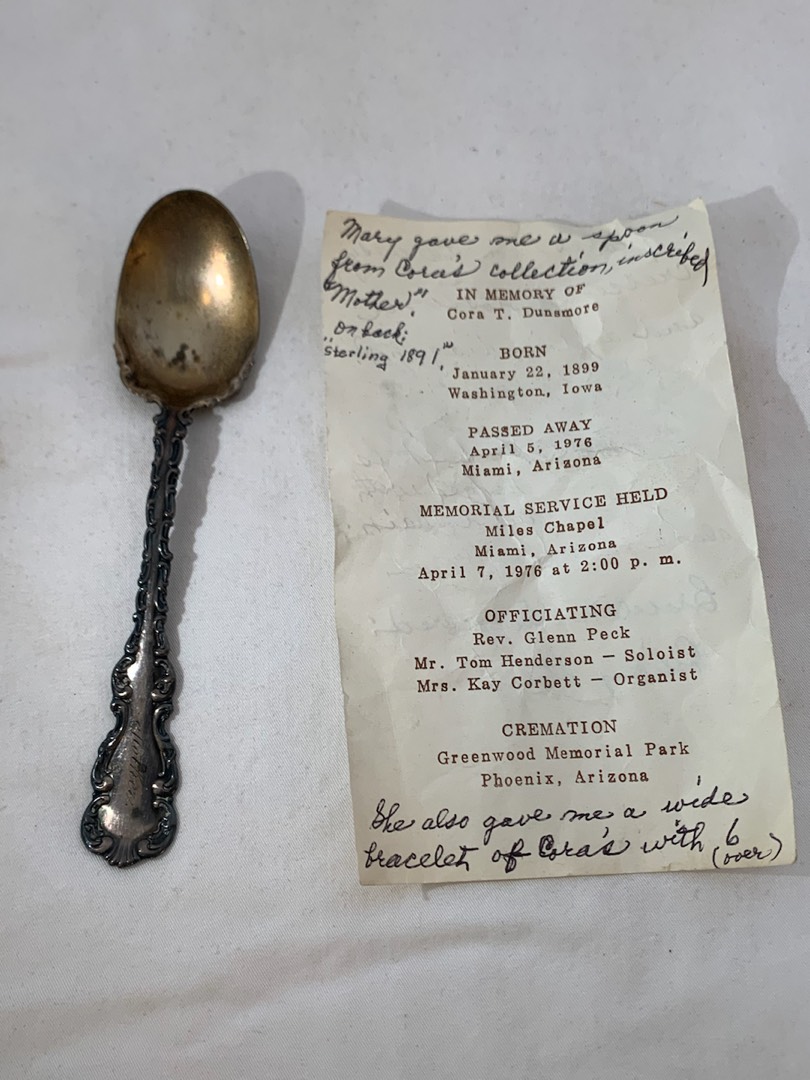 Mother
Mary gave me a spoon
from Cora's collection, inscribed
"Mother."
on back:
"sterling 1891"
IN MEMORY OF
Cora T. Dunsmore
BORN
January 22, 1899
Washington, Iowa
PASSED AWAY
April 5, 1976
Miami, Arizona
MEMORIAL SERVICE HELD
Miles Chapel
Miami, Arizona
April 7, 1976 at 2:00 p. m.
OFFICIATING
Rev. Glenn Peck
Mr. Tom Henderson — Soloist
Mrs. Kay Corbett — Organist
CREMATION
Greenwood Memorial Park
Phoenix, Arizona
She also gave me a wide
bracelet of Cora's with 6
(over)